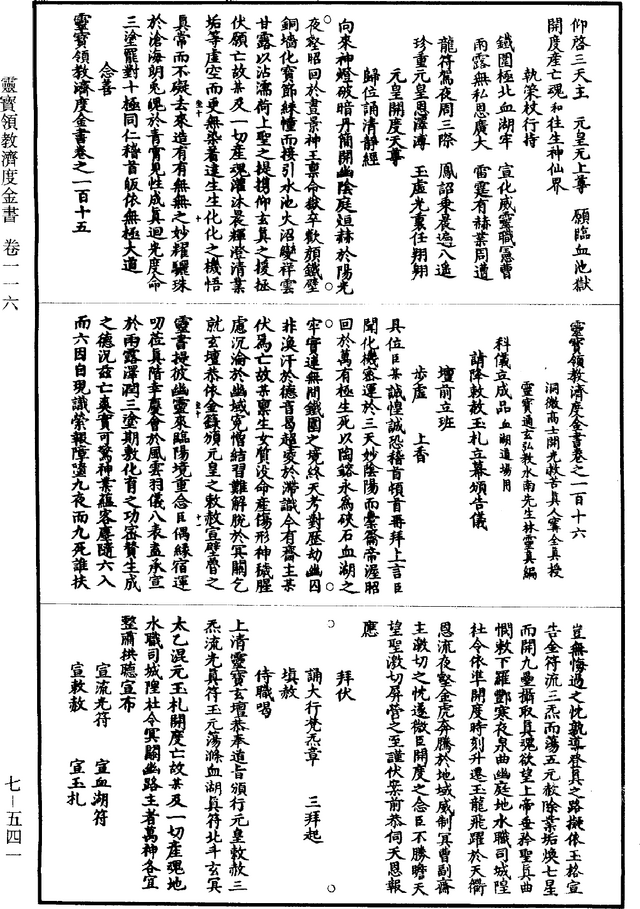 仰啓三天主　元皇元上尊　願臨血池獄
開度産亡魂　和往生神仙界
執策杖行持
鐵圍極北血湖牢　宣化威靈職冥曹
雨露無私恩廣大　雷霆有赫業周遭
龍符駕夜周三際　鳳詔乘晨遍八遥
珍重元皇恩澤溥　玉虚光裏任翔翔
元皇開度天尊
歸位誦清静經
向來神燈破暗丹簡開幽陰庭烜赫於陽光
夜壑昭回於晝景神王禀命獄卒歡顔鐵壁
銅墻化寳飾絳幢而接引水池火沼變祥雲
甘露以沾濡荷上聖之提携仰玄真之援拯
伏願亡故某及一切産魂濯沐晨輝澄清業
垢等虚空而更無染著達生生化化之機悟
真常而不礙去來造有有無無之妙耀驪珠
於滄海朗兔魄於青霄見性成真迴光度命
三塗罷對十極同仁稽首皈依無極大道
念善
靈寳領教濟度金書卷之一百十五
靈寳領教濟度金書卷之一百十六
洞微高士開光救苦真人甯全真授
靈寳通玄弘教水南先生林靈真編
科儀立成品血湖道場用
請降敕赦玉札立幕頒告儀
壇前立班
步虚　上香
具位臣某誠惶誠恐稽首頓首再拜上言臣
聞化機密運於三天妙陰陽而橐籥帝渥昭
回於萬有極生死以陶鎔永為硤石血湖之
牢實連無間鐵圍之境終天考對歴劫幽囚
非渙汗於德音曷超凌於滯識今有齋主某
伏為亡故某禀生女質没命産傷形神穢腥
慮沉淪於幽域寃憎結習難解脱於冥關乞
就玄壇恭依金籙頒元皇之敕赦宣壁魯之
靈書提彼幽靈來臨陽境重念臣偶緣宿運
叨莅真階幸慶會於風雲羽儀八表盍承宣
於雨露澤潤三塗期敷化育之功密贊生成
之德況兹亡爽實可驚神業蘊客塵隨六入
而六因自現識縈報障墮九夜而九死誰扶
豈無悔過之忱孰導登真之路擬依玉格宣
告金符流三炁而蕩五元赦除業垢焕七星
而開九壘攝取真魂欲望上帝垂矜聖真曲
憫敕下羅酆寒夜泉曲幽庭地水職司城隍
社令依準開度時刻升遷玉龍飛躍於天衢
恩流夜壑金虎奔騰於地域威制冥曹副齋
主激切之忱遂微臣開度之念臣不勝瞻天
望聖激切屏營之至謹伏案前恭伺天恩報
應
拜伏
誦大行梵炁章　三拜起
填赦
侍職喝
上清靈寳玄壇恭奉道旨頒行元皇敕赦三
炁流光真符玉元蕩滌血湖真符北斗玄冥
太乙混元玉札開度亡故某及一切産魂地
水職司城隍社令冥關幽路主者萬神各宜
整肅拱聽宣布
宣流光符　宣血湖符
宣敕赦　宣玉札
靈寳領教濟度金書　卷一一六
七—五四一